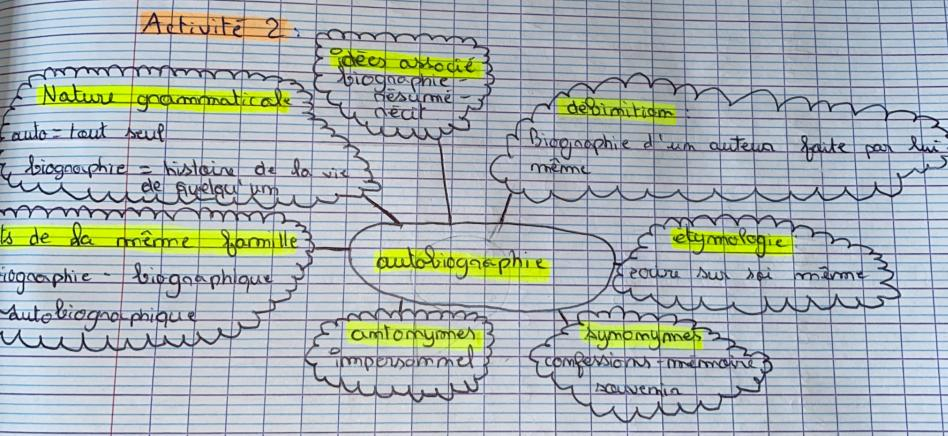 Activité 2.
idées associé
biographie -
résumé -
récit
Nature grammaticale
auto = tout seul
biographie = histoire de la vie
de quelqu'un
définition :
Biographie d'un auteur faite par lui
même
ts de la même famille
iographie - biographique
autobiographique
autobiographie
etymologie
ecrire sur soi même
antonymes
impersonnel
synonymes
confessions - mémoire
souvenir